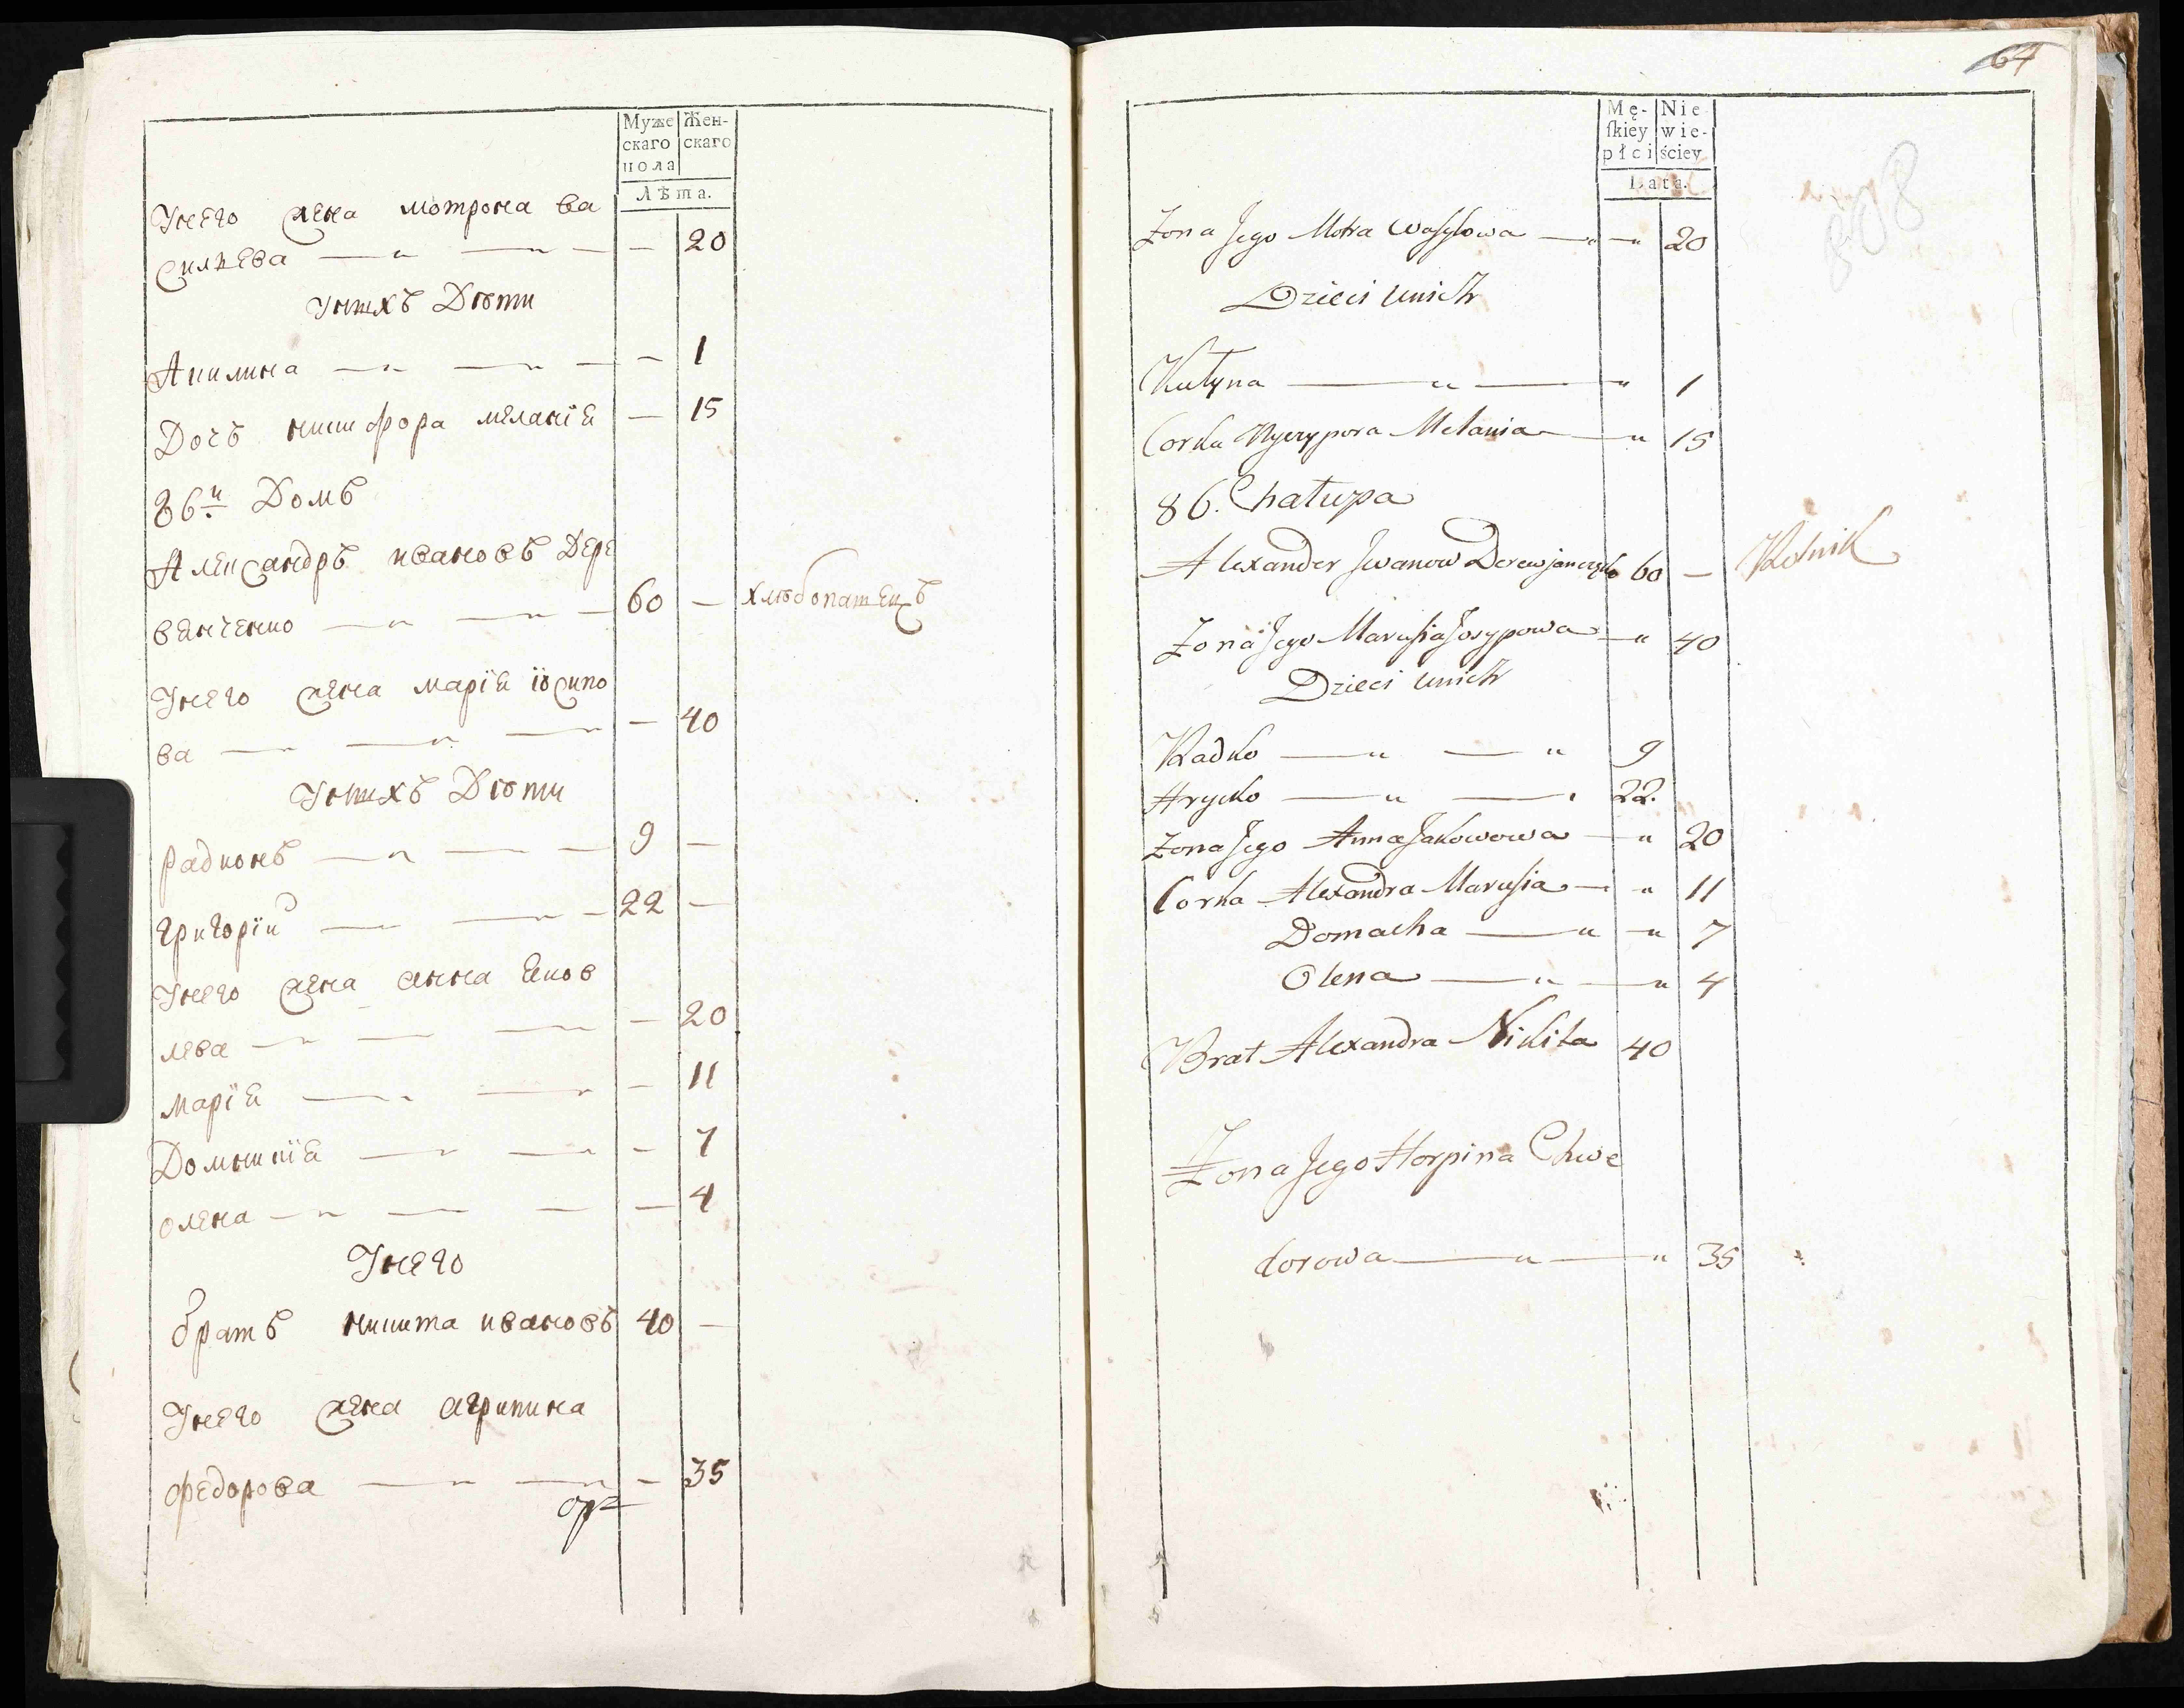 Муже
скаго
пола
Жен-
скаго
Лѣта.
Унего жена мотрона ва
силѣева — 20
Унихъ Дѣти
Акилина — 1
Дочъ никифора меланія — 15
86й Домъ
Александръ ивановъ Дере
вянченко — 60 — хлѣбопашецъ
Унего жена марія іосипо
ва — 40
Унихъ Дѣти
радионъ — 9 —
григоріи — 22 —
Унего жена анна яков
лева — 20
марія — 11
Домникія — 7
олена — 4
Унего
братъ никита ивановъ 40 —
Унего жена агрипина
федорова — 35
64
808
Mę-
ſkiey
płci
Nie
wie-
ściey
Lata.
Zona Jego Motra Wasylowa — 20
Dzieci unich
Kulyna — 1
Corka Nyczypora Melania — 15
86. Chałupa
Alexander Jwanow Derewjanczęko 60 — Rolnik
Zona Jego Marusia Josypowa — 40
Dzieci unich
Radko — 9
Hrycko — 22.
Zona Jego Anna Jakowowa — 20
Corka Alexandra Marusia — 11
Domacha — 7
Olena — 4
Brat Alexandra Nikita 40
Zona Jego Horpina Chwe
dorowa — 35